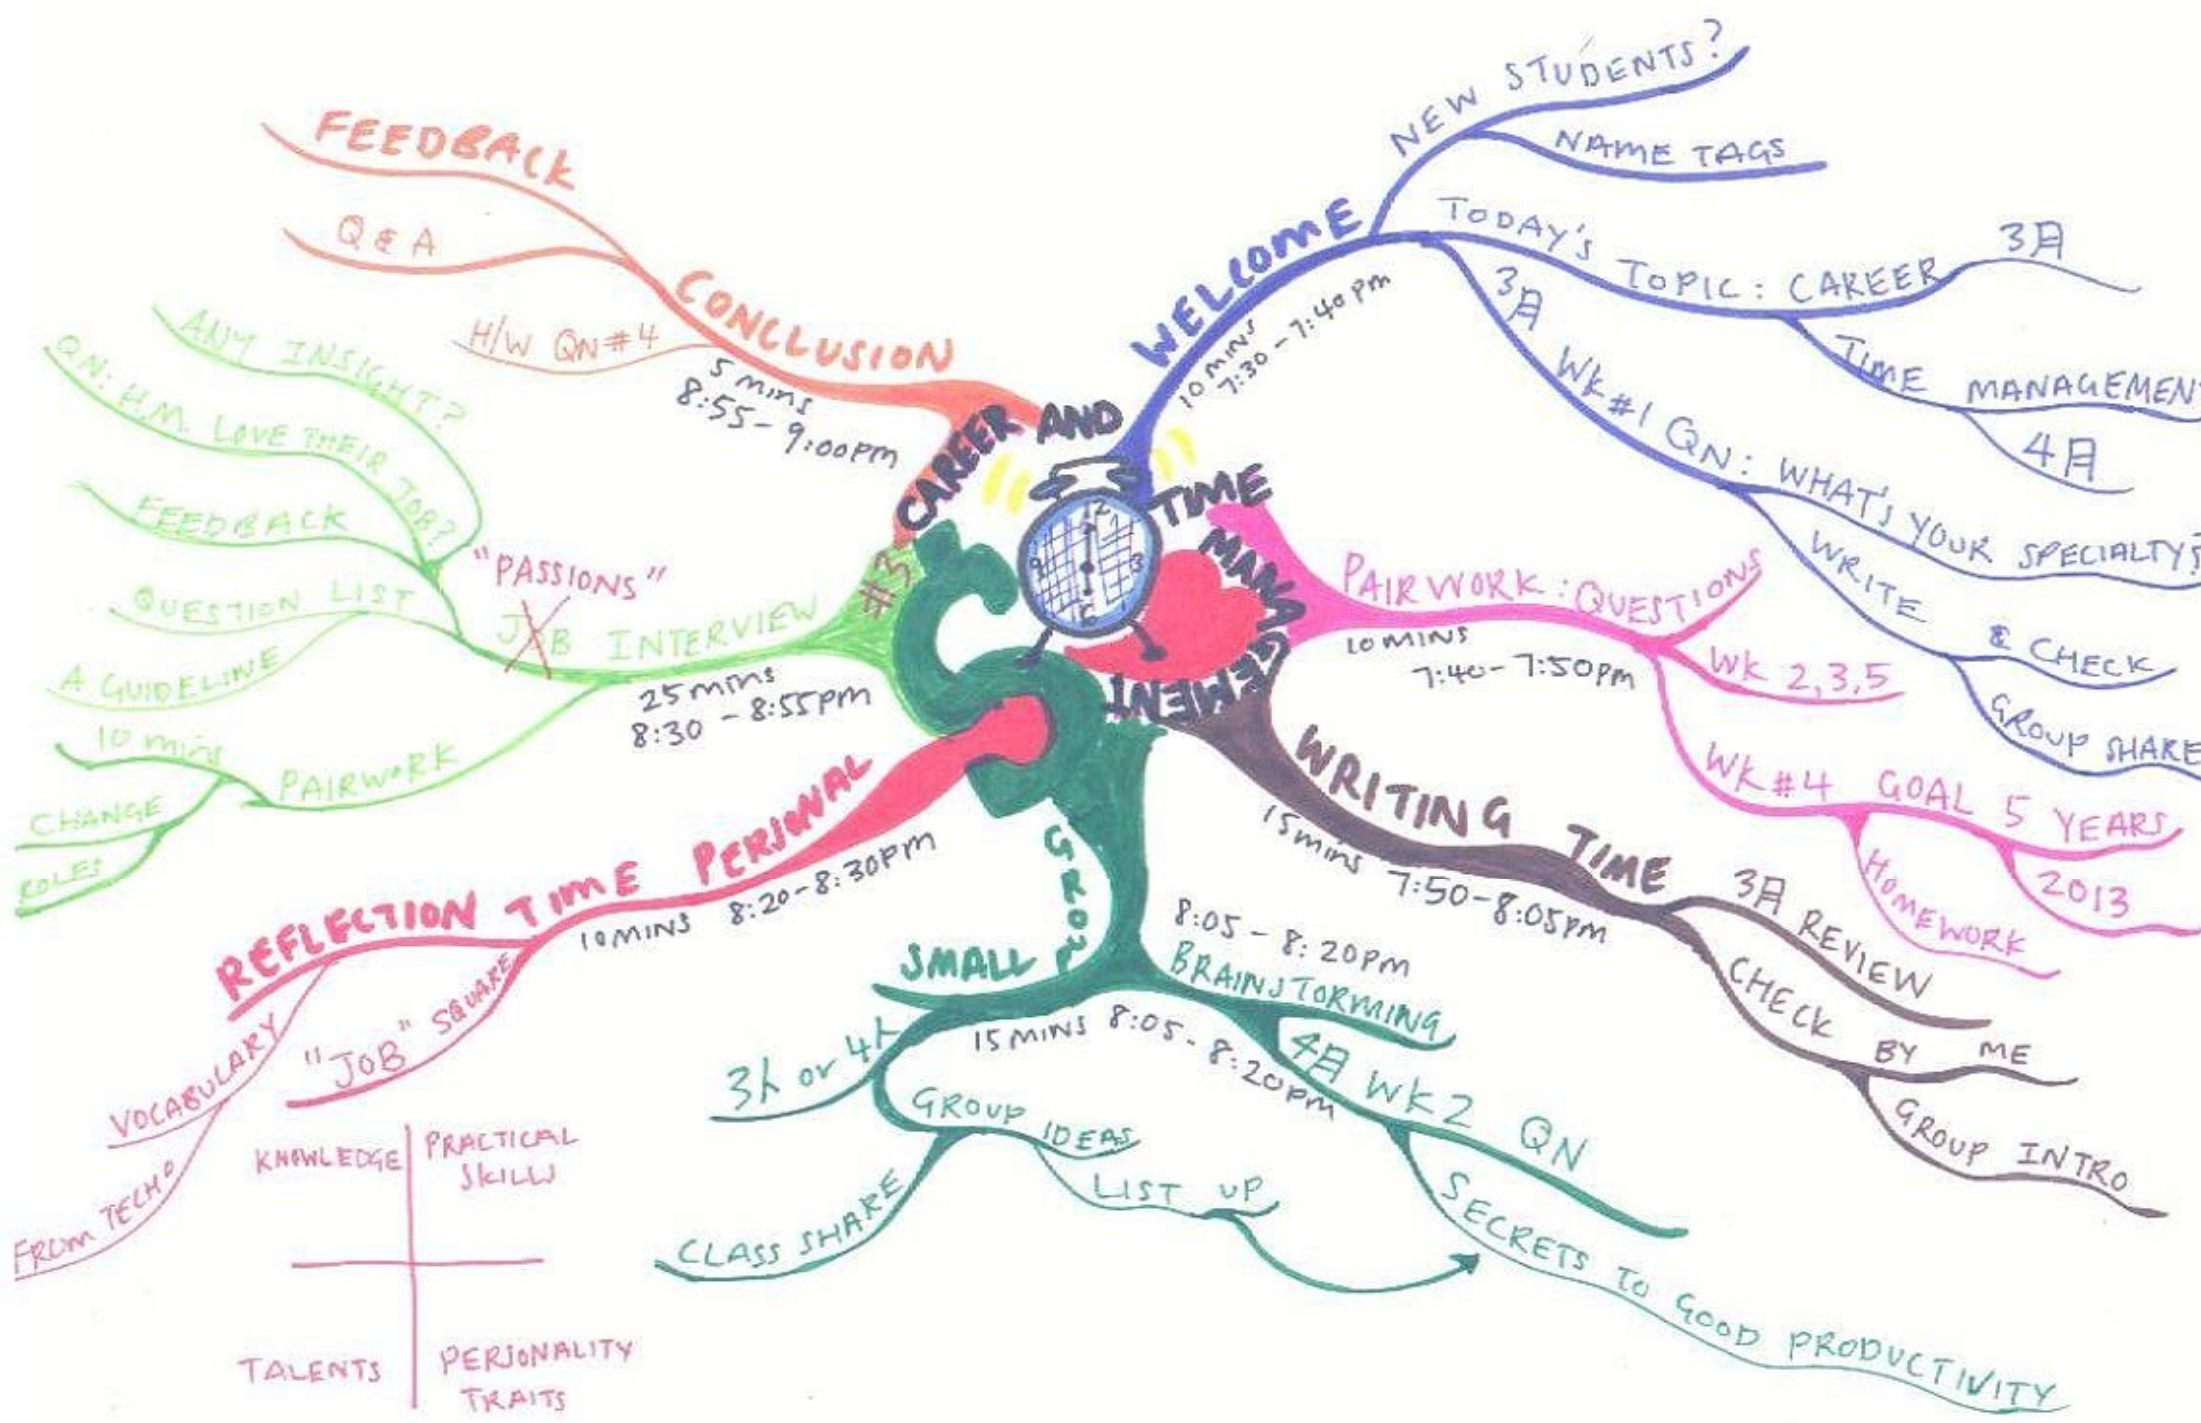 CAREER AND TIME MANAGEMENT
#3
12
3
6
9
WELCOME
10 MINS
7:30 - 7:40 pm
NEW STUDENTS?
NAME TAGS
TODAY'S TOPIC: CAREER
3月
TIME MANAGEMENT
4月
3月 Wk #1 QN: WHAT'S YOUR SPECIALTY?
WRITE & CHECK
GROUP SHARE
PAIRWORK: QUESTIONS
10 MINS
7:40 - 7:50pm
Wk 2,3,5
Wk #4 GOAL 5 YEARS
2013
HOMEWORK
WRITING TIME
15 mins 7:50-8:05pm
3月 REVIEW
CHECK BY ME
GROUP INTRO
SMALL GROUP
15 MINS 8:05 - 8:20pm
8:05 - 8:20pm
BRAINSTORMING
4月 WK 2 QN
SECRETS TO GOOD PRODUCTIVITY
3人 or 4人
GROUP IDEAS
LIST UP
CLASS SHARE
PERSONAL REFLECTION TIME
10 MINS 8:20-8:30pm
"JOB" SQUARE
VOCABULARY
FROM TECHO
KNOWLEDGE
PRACTICAL
SKILLS
TALENTS
PERSONALITY
TRAITS
"PASSIONS"
JOB INTERVIEW
25 mins
8:30 - 8:55pm
ANY INSIGHT?
QN: H.M. LOVE THEIR JOB?
FEEDBACK
QUESTION LIST
A GUIDELINE
PAIRWORK
10 mins
CHANGE
ROLES
CONCLUSION
5 mins
8:55 - 9:00pm
FEEDBACK
Q & A
H/W QN #4